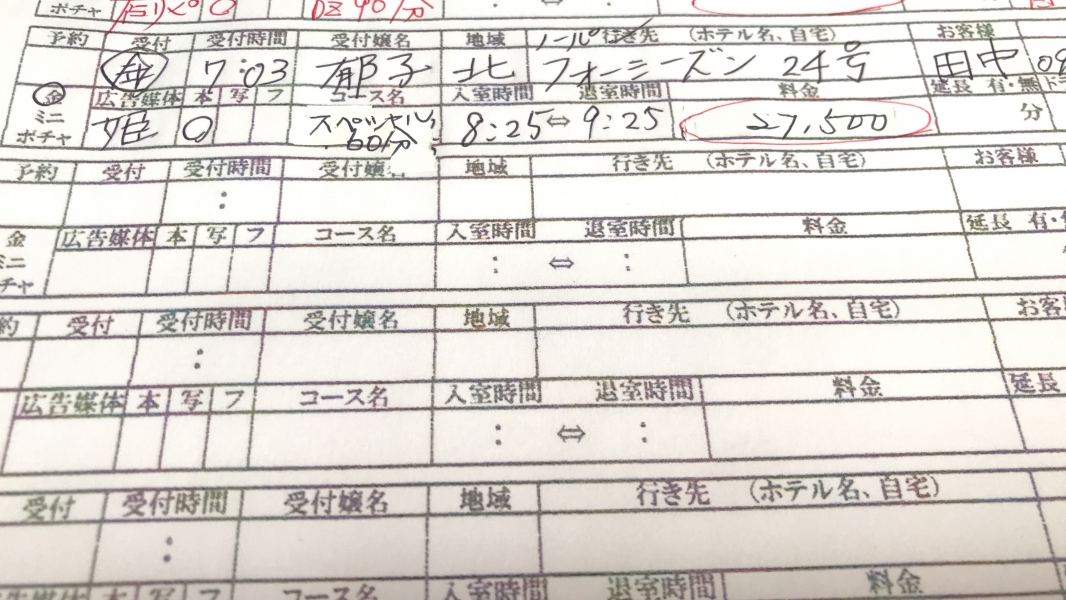 ポチャ 90分
予約 受付 受付時間 受付嬢名 地域 行き先 (ホテル名、自宅) お客様
金 7:03 郁子 北 フォーシーズン 24号 田中 09
金 広告媒体 本 写 フ コース名 入室時間 退室時間 料金 延長 有・無
ミニ
ポチャ 姫 〇 スペシャル 60分 8:25⇔9:25 27,500 分
予約 受付 受付時間 受付嬢名 地域 行き先 (ホテル名、自宅) お客様
:
金 広告媒体 本 写 フ コース名 入室時間 退室時間 料金 延長 有・
ミニ : ⇔ :
チャ
約 受付 受付時間 受付嬢名 地域 行き先 (ホテル名、自宅) お客
:
広告媒体 本 写 フ コース名 入室時間 退室時間 料金 延長
: ⇔ :
受付 受付時間 受付嬢名 地域 行き先 (ホテル名、自宅)
:
広告媒体 本 写 フ コース名 入室時間 退室時間 料金